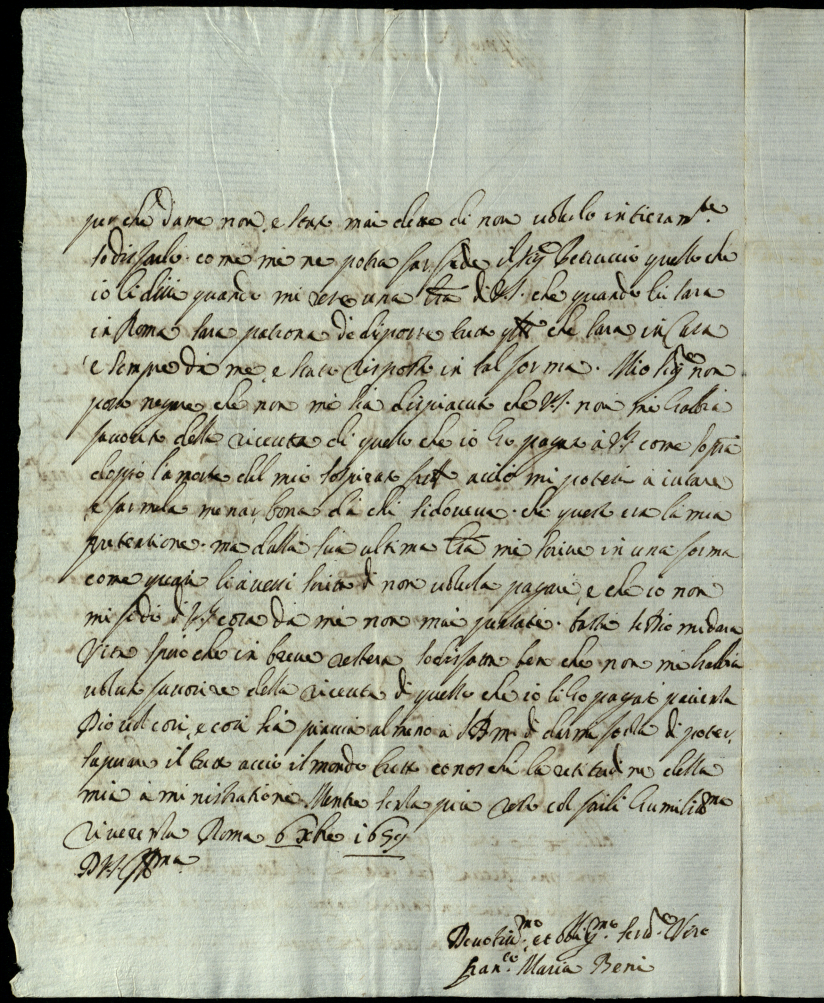 per che da me non è stato mai detto di non volerlo intieram.te
sodisfarlo. come mi ne potra far fede il Sig.r Petruccio quello che
io li dissi quando mi rese una lra di VS. che quando lei sara
in Roma sara patrona de disporre tutto q.to che sara in Casa
e sempre da me e stato risposto in tal forma. Mio Sig.re non
posso negare che non mi sia dispiaciuto che VS. non mi habbia
favorito della riceuta di quello che io ho pagato à VS come sopra
doppo la morte del mio sospirato frtto acciò mi potesse aiutare
e farmela menar bona da chi si doveva. che questo era la mia
pretentione. ma dalla sua ultima lra mi scrive in una forma
come quasi li avessi scritto di non volerla pagare e che io non
mi fido di VS cosa da me non mai parlata. basta se Dio mi dara
Vita spero che in breve restera sodisfatta ben che non mi habbia
voluto favorire della riceuta di quello che io li ho pagato patientia
Dio vol cosi, e cosi sia piaccia almeno à S.D.M. di darmi forza di poter
sapurare il tutto acciò il mondo tutto conosca la retitudine della
mia aministratione. Mentre senza piu resto col farli humiliss.ma
riverentia Roma 6 Xbre 1659
D VS Ill.ma
Devotiss.mo et obblig.mo Serv.re Vero
Fran.co Maria Beni